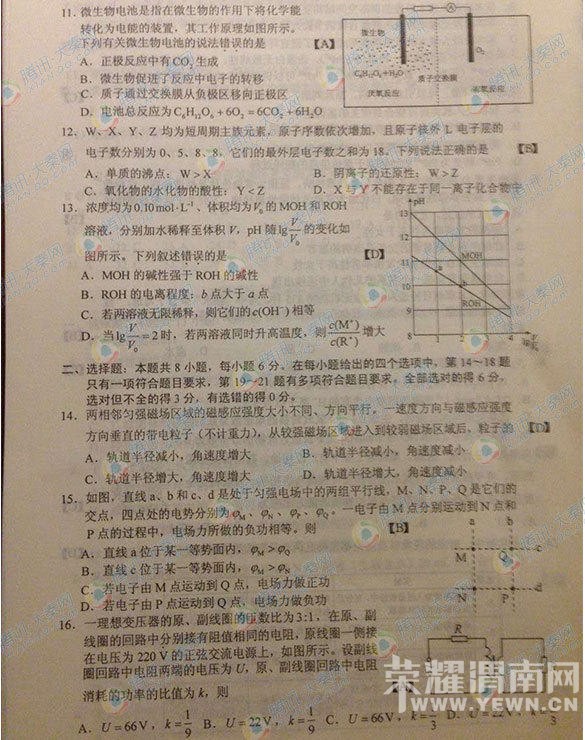 11. 微生物电池是指在微生物的作用下将化学能
转化为电能的装置，其工作原理如图所示。
下列有关微生物电池的说法错误的是 【A】
A．正极反应中有CO₂生成
B．微生物促进了反应中电子的转移
C．质子通过交换膜从负极区移向正极区
D．电池总反应为C₆H₁₂O₆+6O₂=6CO₂+6H₂O
微生物
A
O₂
C₆H₁₂O₆+H₂O
质子交换膜
厌氧反应
有氧反应
12. W、X、Y、Z均为短周期主族元素，原子序数依次增加，且原子核外L电子层的
电子数分别为0、5、8、8，它们的最外层电子数之和为18。下列说法正确的是 【B】
A．单质的沸点：W＞X B．阴离子的还原性：W＞Z
C．氧化物的水化物的酸性：Y＜Z D．X与Y不能存在于同一离子化合物中
13. 浓度均为0.10mol·L⁻¹、体积均为V₀的MOH和ROH
溶液，分别加水稀释至体积V，pH随lg V/V₀的变化如
图所示。下列叙述错误的是 【D】
A．MOH的碱性强于ROH的碱性
B．ROH的电离程度：b点大于a点
C．若两溶液无限稀释，则它们的c(OH⁻)相等
D．当lg V/V₀=2时，若两溶液同时升高温度，则c(M⁺)/c(R⁺)增大
pH
13
12
11
10
9
8
MOH
a
b
ROH
1 2 3 4
二、选择题：本题共8小题，每小题6分。在每小题给出的四个选项中，第14～18题
只有一项符合题目要求，第19～21题有多项符合题目要求。全部选对的得6分，
选对但不全的得3分，有选错的得0分。
14. 两相邻匀强磁场区域的磁感应强度大小不同、方向平行。一速度方向与磁感应强度
方向垂直的带电粒子（不计重力），从较强磁场区域进入到较弱磁场区域后，粒子的 【D】
A．轨道半径减小，角速度增大 B．轨道半径减小，角速度减小
C．轨道半径增大，角速度增大 D．轨道半径增大，角速度减小
15. 如图，直线a、b和c、d是处于匀强电场中的两组平行线，M、N、P、Q是它们的
交点，四点处的电势分别为φM、φN、φP、φQ。一电子由M点分别运动到N点和
P点的过程中，电场力所做的负功相等。则 【B】
A．直线a位于某一等势面内，φM＞φQ
B．直线c位于某一等势面内，φM＞φN
C．若电子由M点运动到Q点，电场力做正功
D．若电子由P点运动到Q点，电场力做负功
a b
M Q c
N P d
16. 一理想变压器的原、副线圈的匝数比为3:1，在原、副
线圈的回路中分别接有阻值相同的电阻，原线圈一侧接
在电压为220 V的正弦交流电源上，如图所示。设副线
圈回路中电阻两端的电压为U，原、副线圈回路中电阻
消耗的功率的比值为k，则
R
A．U=66V，k=1/9 B．U=22V，k=1/9 C．U=66V，k=1/3 D．U=22V，k=1/3
荣耀渭南网
WWW.YEWN.CN
腾讯·大秦网